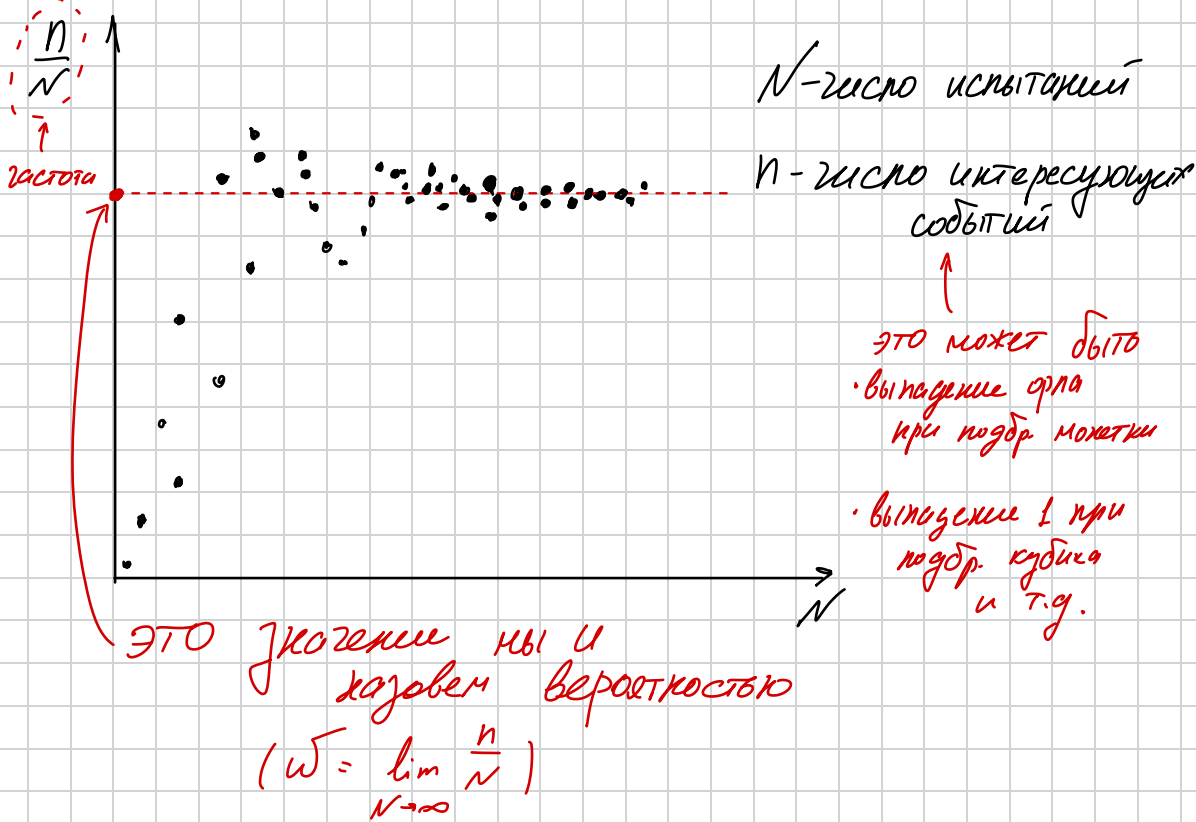 n
N
частота
N - число испытаний
n - число интересующих
событий
это может быть
· выпадение орла
при подбр. монетки
· выпадение 1 при
подбр. кубика
и т.д.
N
это значение мы и
назовем вероятностью
(w = lim n/N)
N→∞